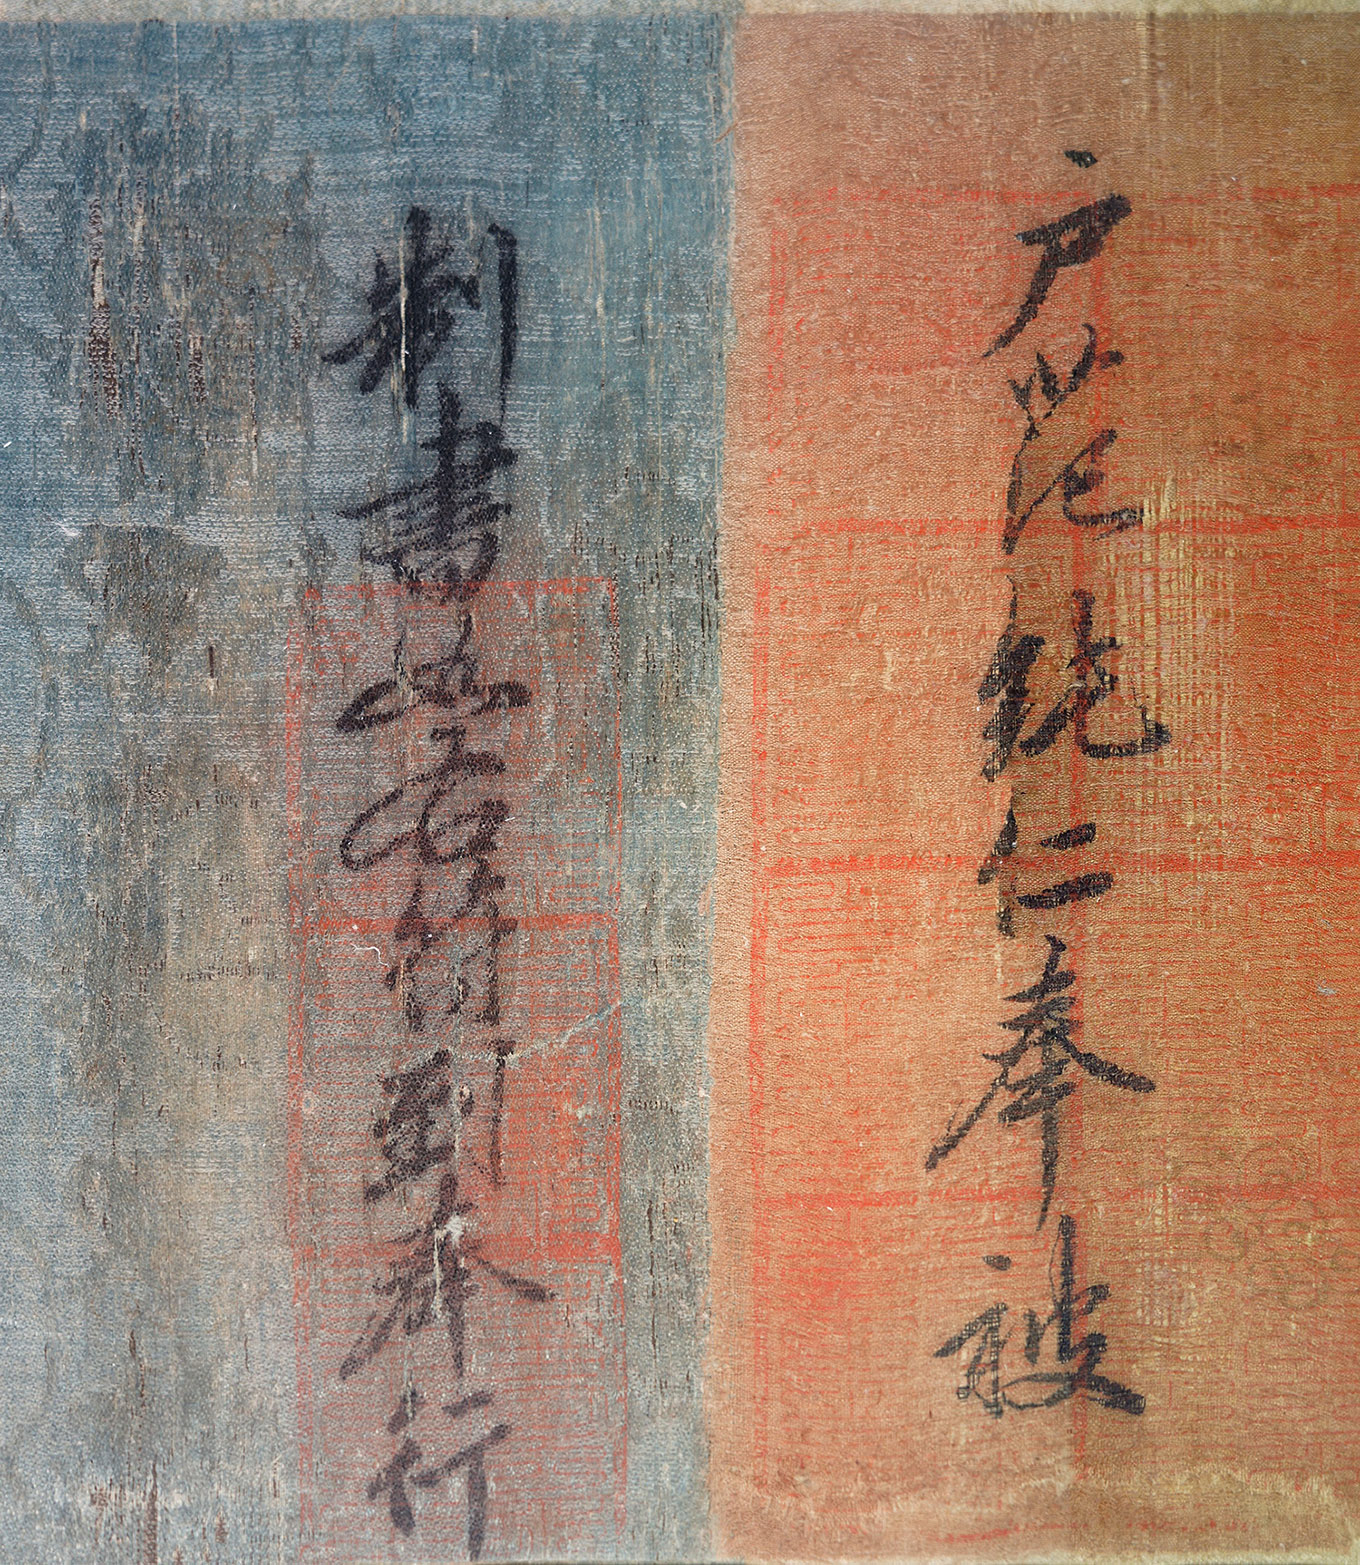 户范純仁奉被
制書如右符到奉行